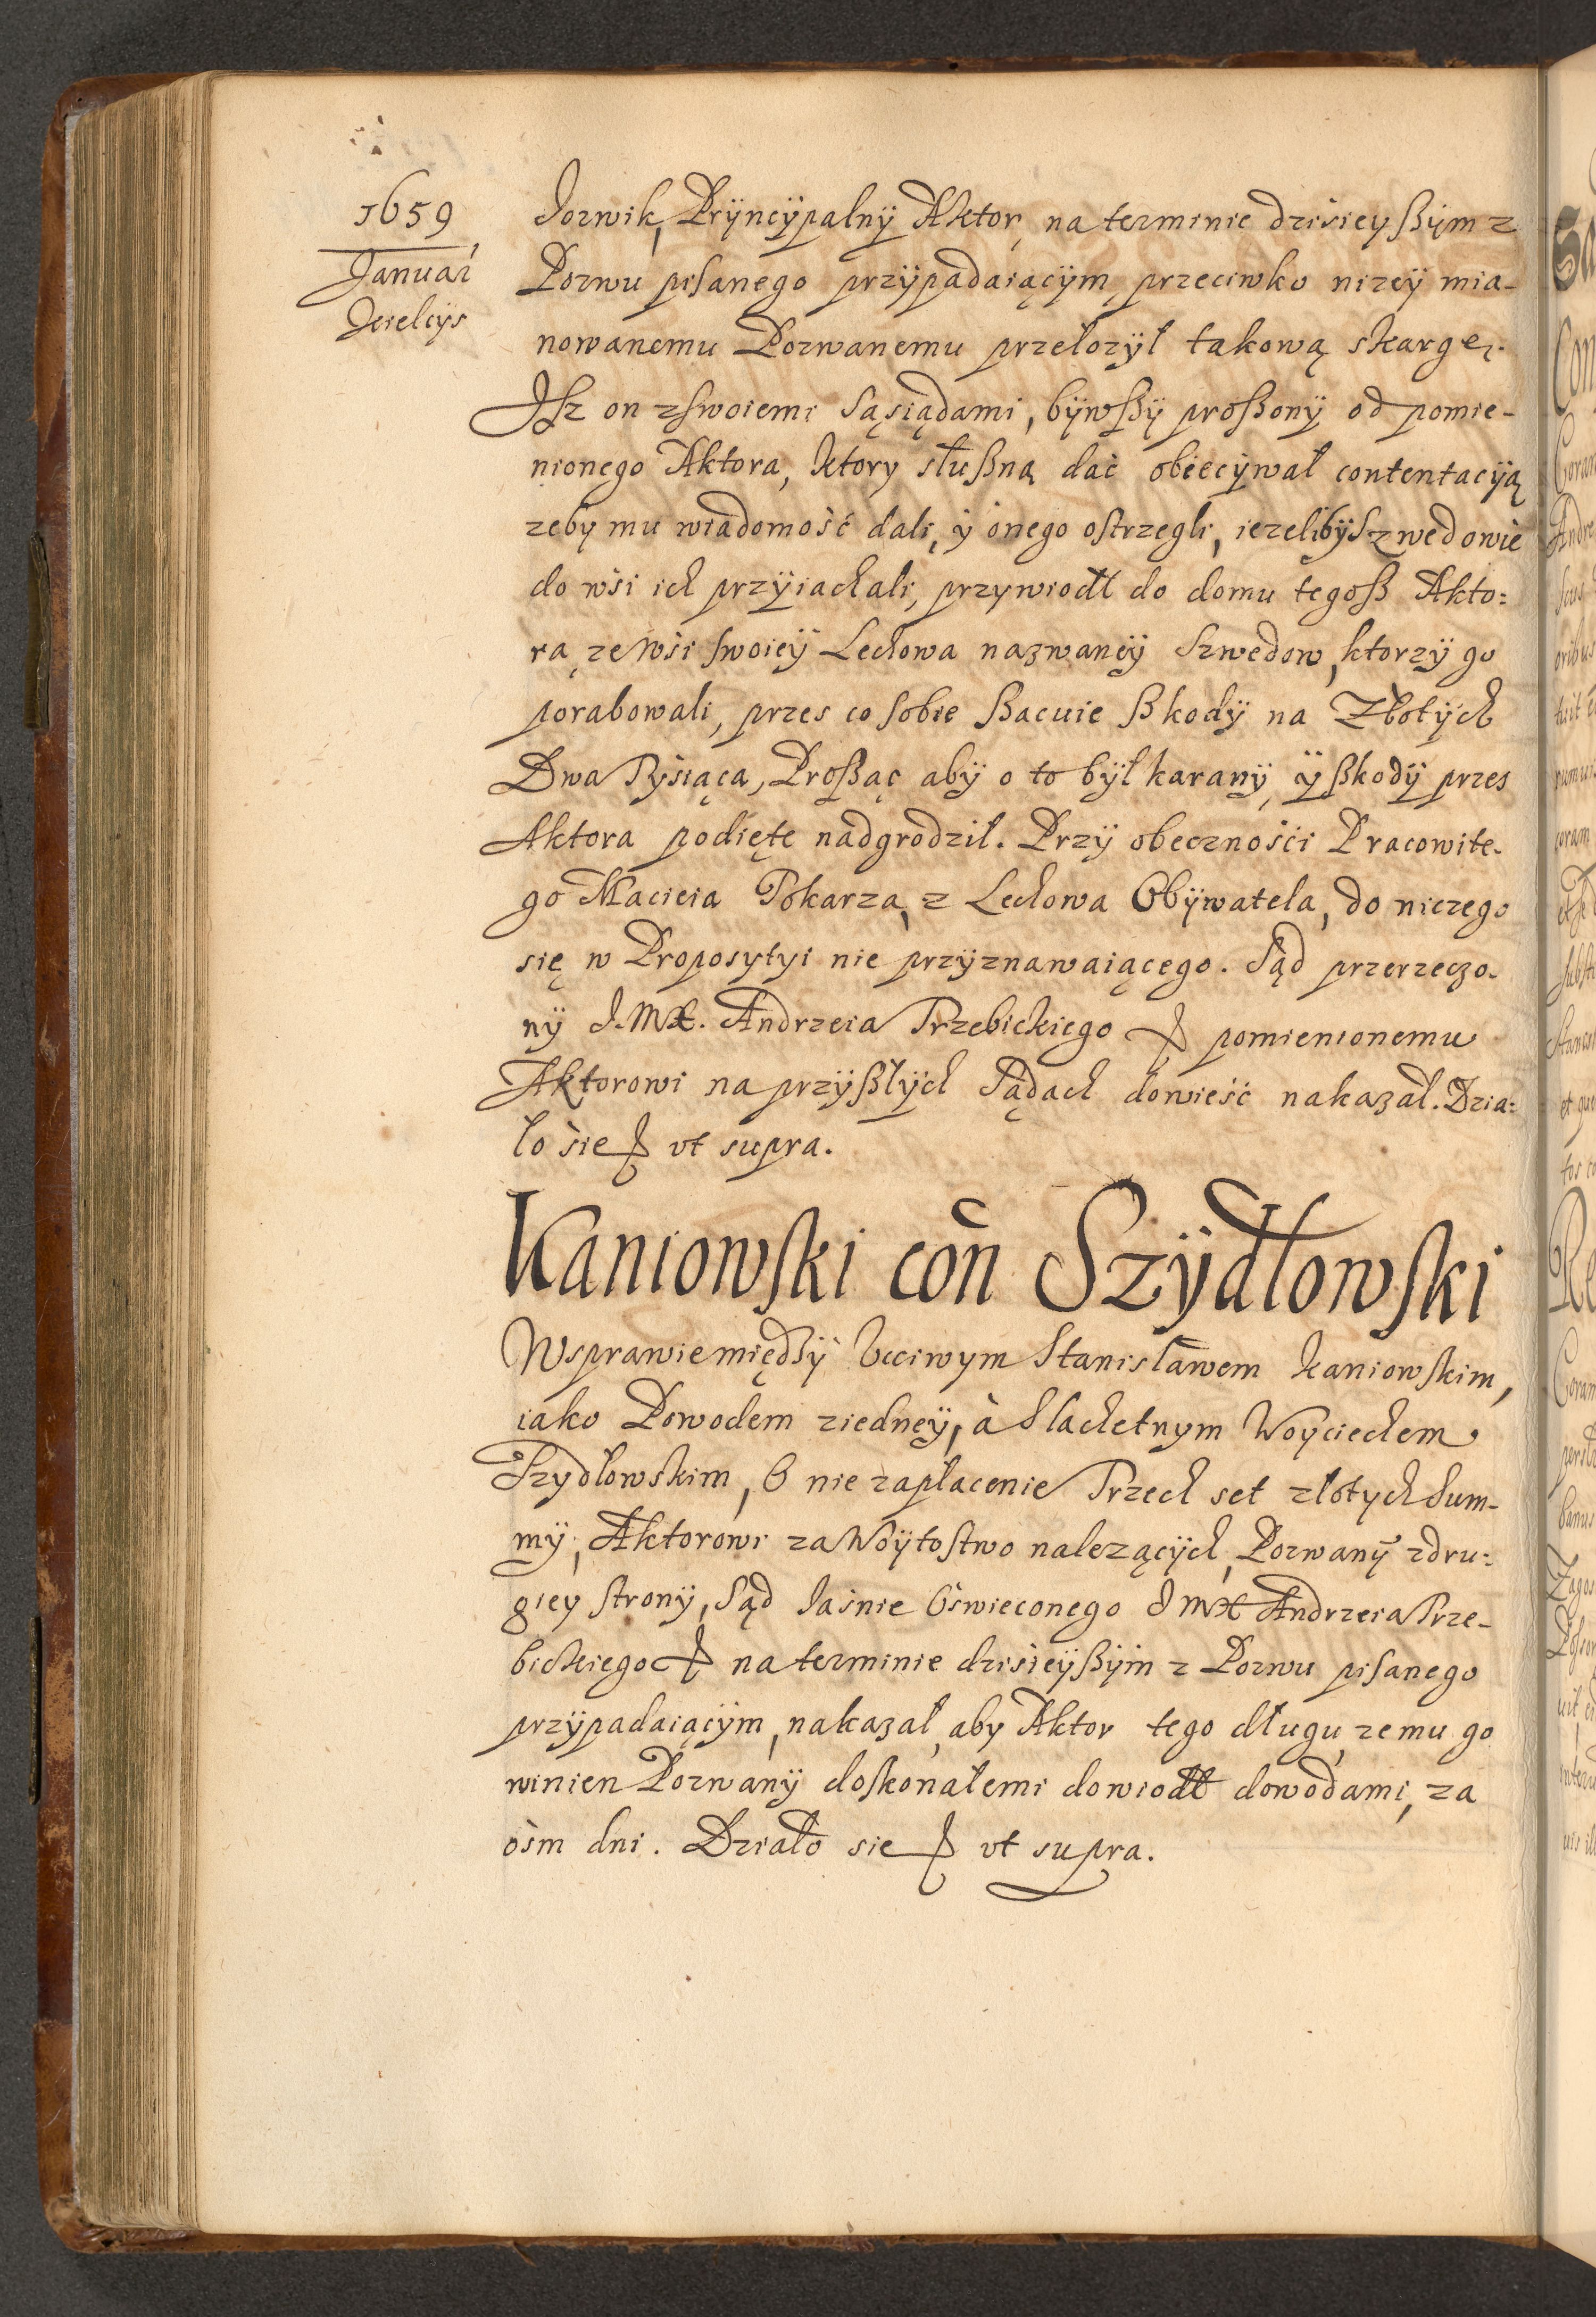 1659
Januar
Jeielcÿs
Jozwik, Prÿncÿpalnÿ Aktor, na terminie dzisieyßÿm z
Pozwu pisanego przÿpadaiącÿm, przeciwko nizeÿ mia-
nowanemu Pozwanemu przełozÿł takową skargę.
Isz on zswoiemi Sąsiądami, bÿwßÿ proßonÿ od pomie-
nionego Aktora, ktory słußną dać obiecÿwał contentacÿą
zeby mu wiadomość dali, ÿ onego ostrzegli, iezelibÿ Szwedowie
do wśi ich przÿiachali, przywiodł do domu tegoß Akto:
ra, ze wśi swoieÿ Lechowa nazwaneÿ Szwedow, ktorzÿ go
porabowali, przes co sobie ßacuie ßkodÿ na Złotÿch
Dwa Tÿsiąca, Proßąc abÿ o to bÿł karanÿ, ÿ ßkodÿ przes
Aktora podięte nadgrodził. Przÿ obecznośći Pracowite-
go Macieia Tokarza, z Lechowa Obÿwatela, do niczego
się w Proposytyi nie przÿznawaiącego. Sąd przerzeczo-
nÿ J. MX. Andrzeia Trzebickiego & pomienionemu
Aktorowi na przÿßłÿch Sądach dowieść nakazał. Dzia:
ło śie & vt supra.
Kaniowski con Szÿdłowski
W sprawie międsÿ Vcciwym Stanisławem Kaniowskim,
iako Powodem ziedneÿ, à Slachetnym Woÿciechem
Szydłowskim, O nie zapłacenie Trzech set złotych Sum-
mÿ, Aktorowi za Woÿtostwo nalezącÿch, Pozwanÿ zdru:
giey stronÿ, Sąd Jaśnie Oświeconego J MX Andrzeia Trze-
bickiego & na terminie dzisieÿßÿm z Pozwu pisanego
przÿpadaiącÿm, nakazał, aby Aktor tego długu, ze mu go
winien Pozwanÿ doskonałemi dowiodł dowodami, za
ośm dni. Działo sie & vt supra.